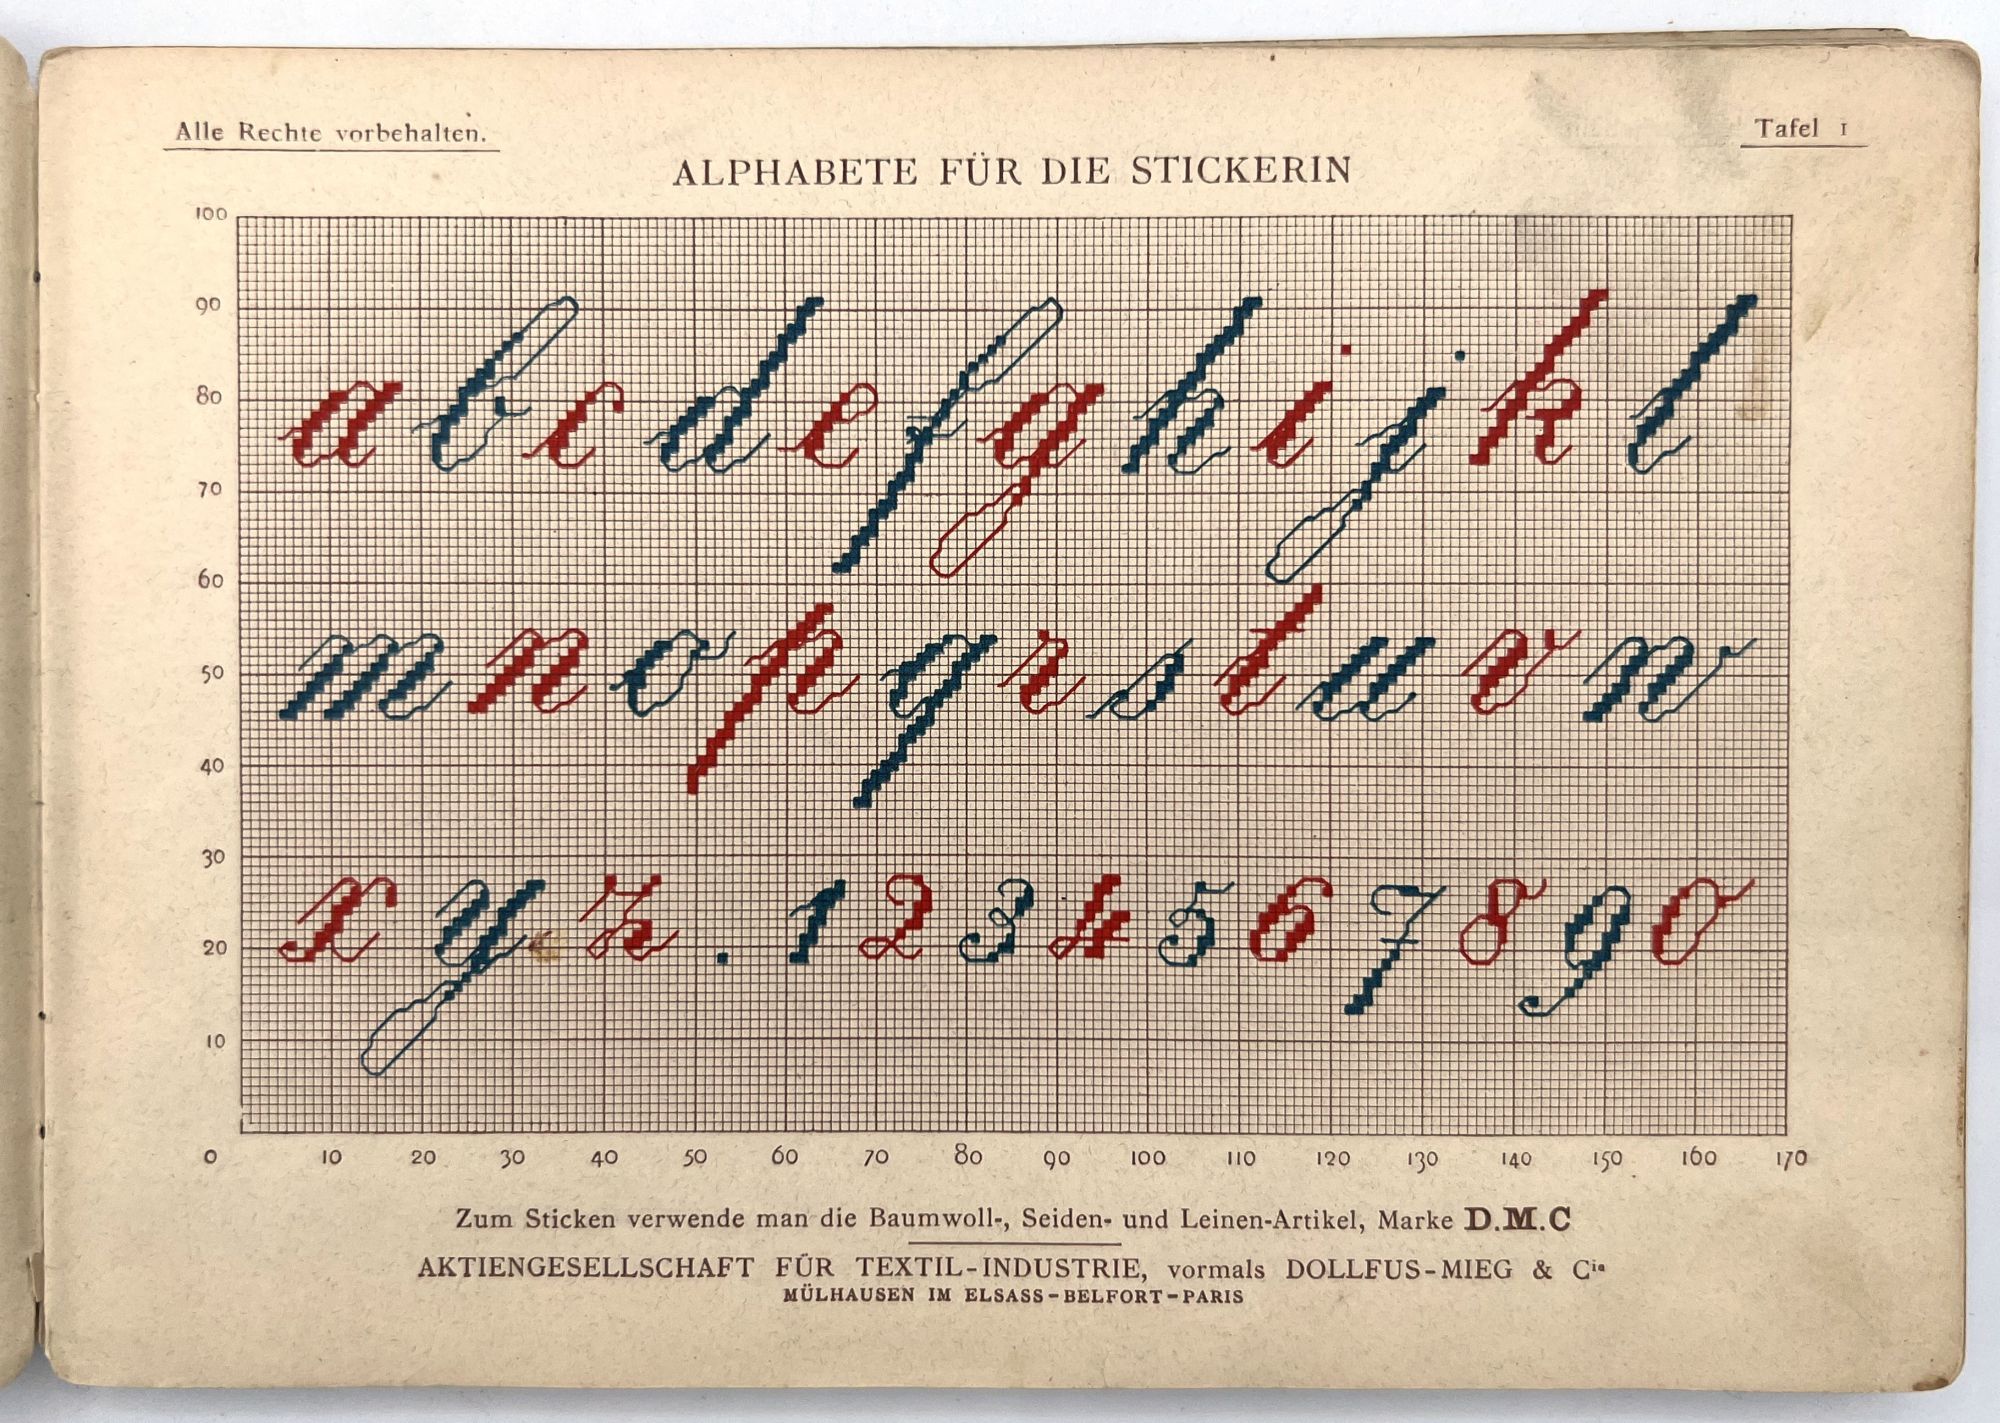 Alle Rechte vorbehalten.
Tafel 1
ALPHABETE FÜR DIE STICKERIN
100
90
a b c d e f g h i j k l
80
70
60
m n o p q r s t u v w
50
40
30
x y z . 1 2 3 4 5 6 7 8 9 0
20
10
0 10 20 30 40 50 60 70 80 90 100 110 120 130 140 150 160 170
Zum Sticken verwende man die Baumwoll-, Seiden- und Leinen-Artikel, Marke D.M.C
AKTIENGESELLSCHAFT FÜR TEXTIL-INDUSTRIE, vormals DOLLFUS-MIEG & Cie
MÜLHAUSEN IM ELSASS-BELFORT-PARIS